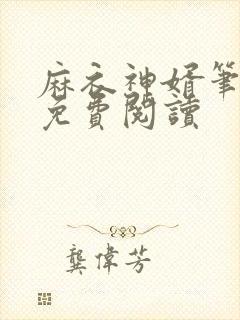 麻衣神婿筆
免費閱讀
龔偉芳